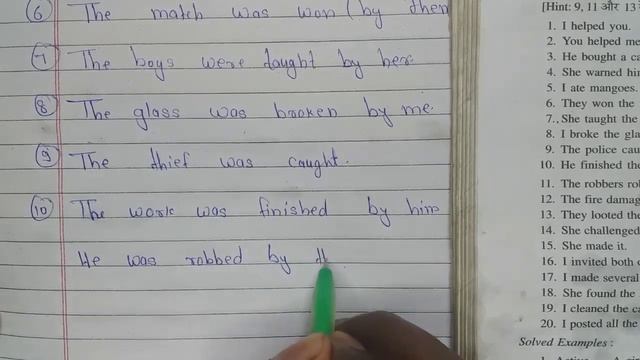 (6) The match was won (by them
(7) The boys were taught by her.
(8) The glass was broken by me.
(9) The thief was caught.
(10) The work was finished by him
He was robbed by
[Hint: 9, 11 और 13
1. I helped you.
2. You helped me
3. He bought a ca
4. She warned him
5. I ate mangoes.
6. They won the
7. She taught the
8. I broke the gla
9. The police cau
10. He finished the
11. The robbers rol
12. The fire damag
13. They looted the
14. She challenged
15. She made it.
16. I invited both
17. I made several
18. She found the
19. I cleaned the ca
20. I posted all the
Solved Examples :